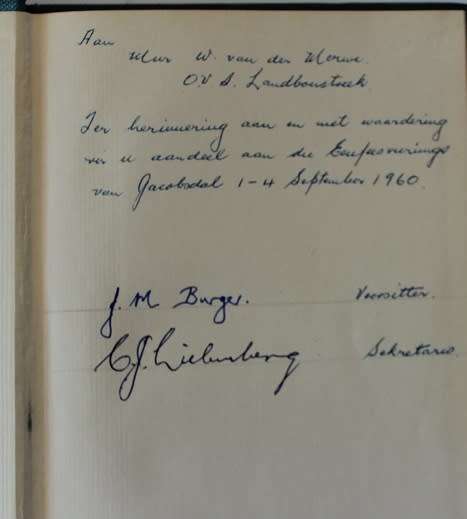 Aan
Mnr W. van der Merwe.
O.V.S. Landboustreek.
Ter herinnering aan en met waardering
vir u aandeel aan die Eeufeesvierings
van Jacobsdal 1-4 September 1960.
J. M Burger. Voorsitter.
C.J. Liebenberg Sekretaris.